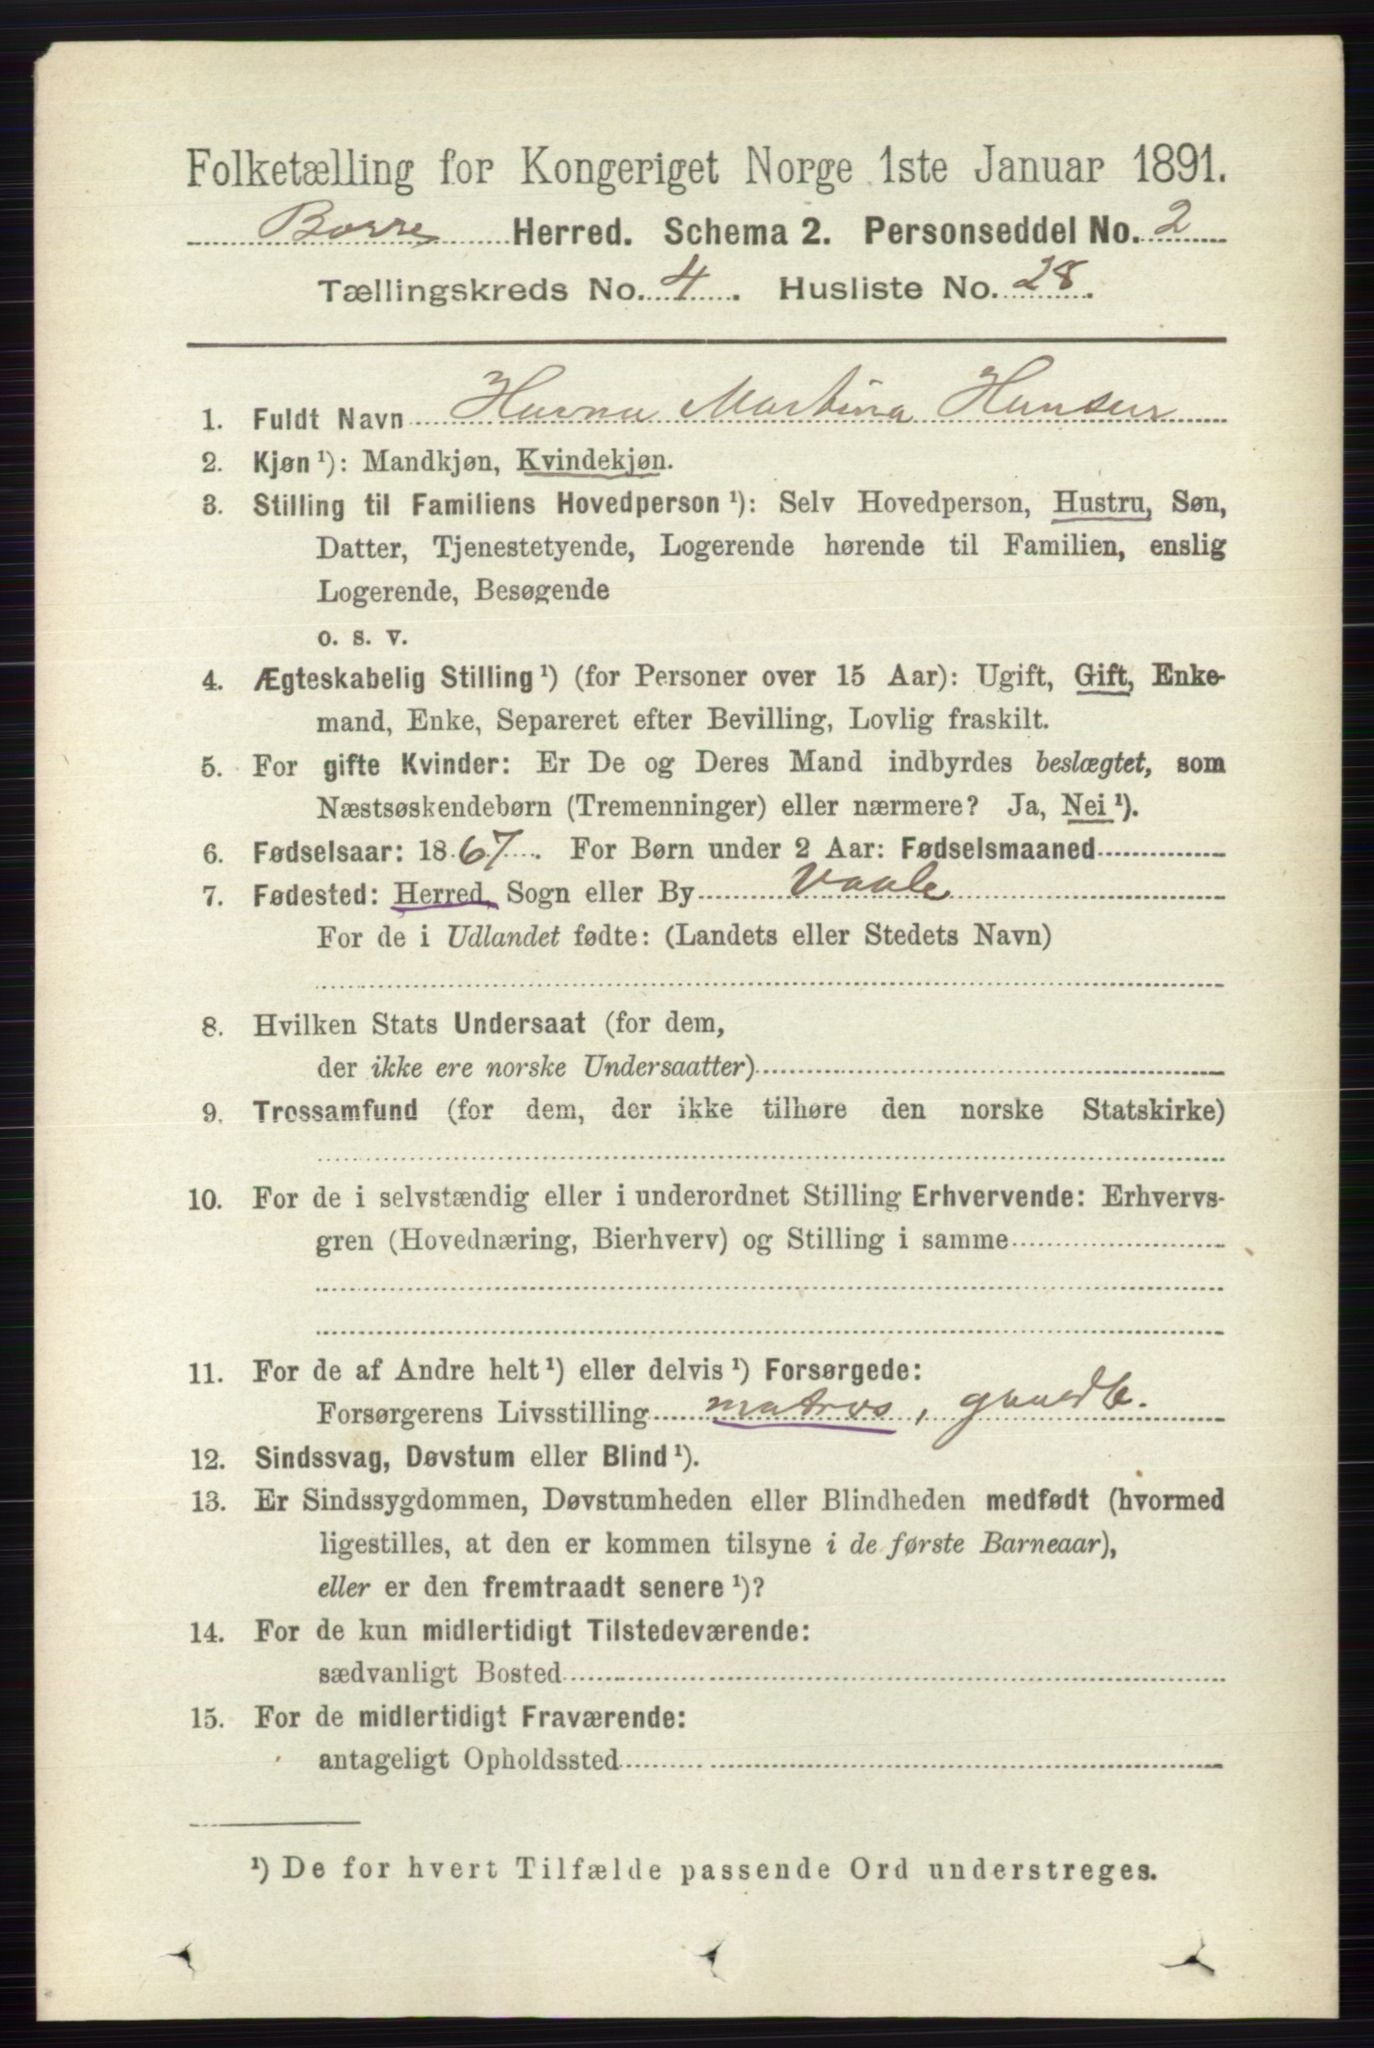 Folketælling for Kongeriget Norge 1ste Januar 1891.
Borre Herred. Schema 2. Personseddel No. 2
Tællingskreds No. 4. Husliste No. 28.
1. Fuldt Navn Hanna Martina Hansen
2. Kjøn ¹): Mandkjøn, Kvindekjøn.
3. Stilling til Familiens Hovedperson ¹): Selv Hovedperson, Hustru, Søn,
Datter, Tjenestetyende, Logerende hørende til Familien, enslig
Logerende, Besøgende
o. s. v.
4. Ægteskabelig Stilling ¹) (for Personer over 15 Aar): Ugift, Gift, Enke-
mand, Enke, Separeret efter Bevilling, Lovlig fraskilt.
5. For gifte Kvinder: Er De og Deres Mand indbyrdes beslægtet, som
Næstsøskendebørn (Tremenninger) eller nærmere? Ja, Nei ¹).
6. Fødselsaar: 1867. For Børn under 2 Aar: Fødselsmaaned
7. Fødested: Herred, Sogn eller By Vaale
For de i Udlandet fødte: (Landets eller Stedets Navn)
8. Hvilken Stats Undersaat (for dem,
der ikke ere norske Undersaatter)
9. Trossamfund (for dem, der ikke tilhøre den norske Statskirke)
10. For de i selvstændig eller i underordnet Stilling Erhvervende: Erhvervs-
gren (Hovednæring, Bierhverv) og Stilling i samme
11. For de af Andre helt ¹) eller delvis ¹) Forsørgede:
Forsørgerens Livsstilling matros, gaardb.
12. Sindssvag, Døvstum eller Blind ¹).
13. Er Sindssygdommen, Døvstumheden eller Blindheden medfødt (hvormed
ligestilles, at den er kommen tilsyne i de første Barneaar),
eller er den fremtraadt senere ¹)?
14. For de kun midlertidigt Tilstedeværende:
sædvanligt Bosted
15. For de midlertidigt Fraværende:
antageligt Opholdssted
¹) De for hvert Tilfælde passende Ord understreges.